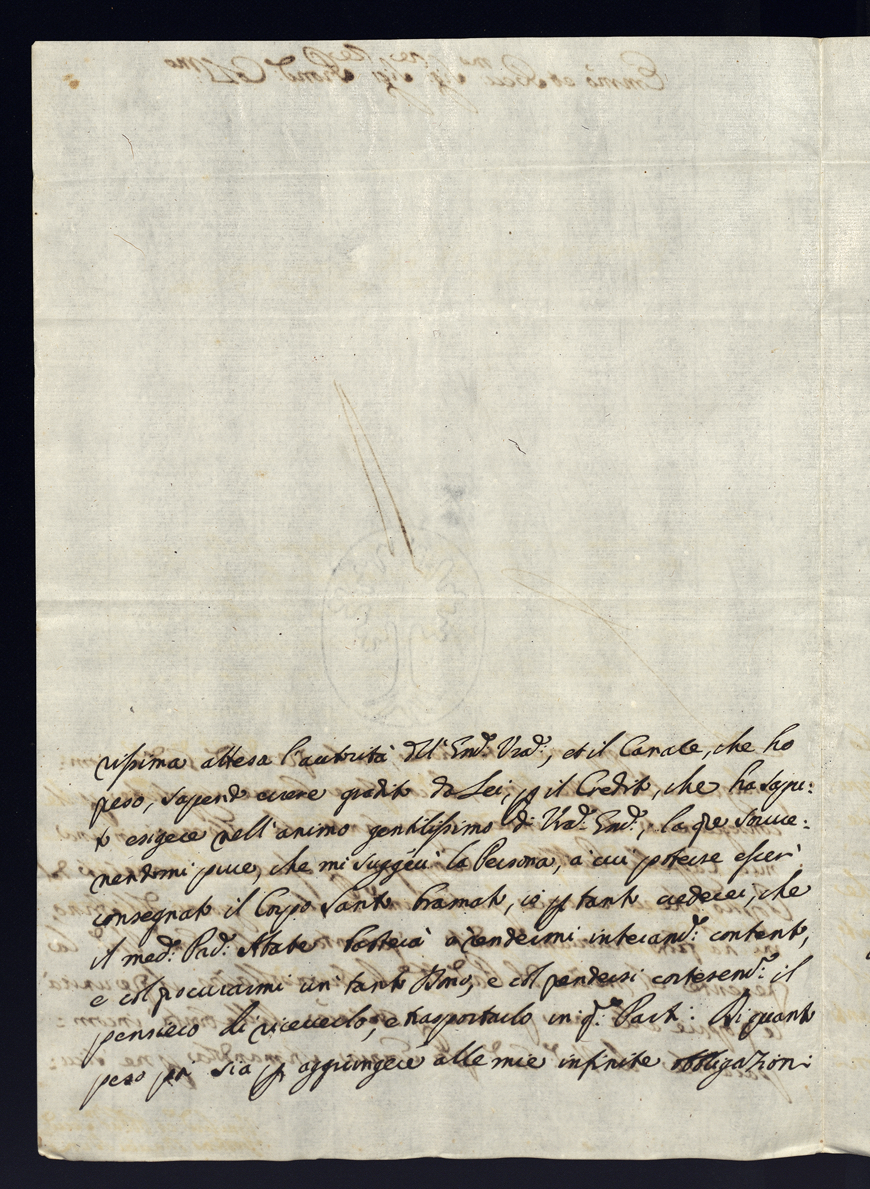 rissima attesa l'autorità dell'Em.ᵃ Vrã., et il Canale, che ho
peso, sapendo avere gradito da Lei, p il Credito, che ha sapu:
to esigere nell'animo gentilissimo di Vrã. Em.ᵃ, la qle sovve:
nendomi pure, che mi suggerì la Persona, a cui potesse esser
consegnato il Corpo Santo bramato, io p tanto crederei, che
il med.º Pad.ʳ Abate basterà a rendermi interam.ᵗᵉ contento,
e col procurarmi un tanto Bno, e col prendersi cortesem.ᵗᵉ il
pensiero di riceverlo, e trasportarlo in q.ᵗᵉ Parti. Di quanto
peso poi sia p aggiungere alle mie infinite obbligazioni